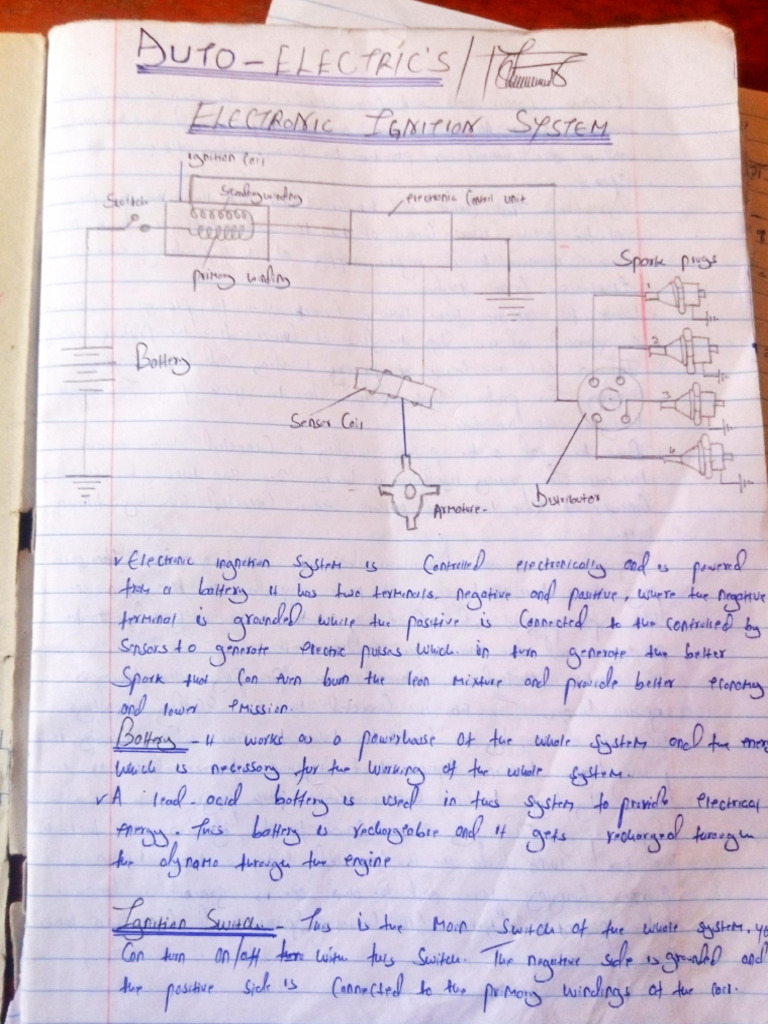 AUTO-ELECTRIC'S /
ELECTRONIC IGNITION SYSTEM
ignition coil
Switch
Secondary winding
electronic Control unit
primary winding
Spark plugs
1
2
3
4
Battery
Sensor Coil
Armature.
Distributor
✓ Electronic ingnition System is Controlled electronically and is powered
from a battery it has two terminals. negative and positive, where the negative
terminal is grounded while the positive is Connected to the controlled by
Sensors to generate electric pulses which in turn generate the better
Spark that Can even burn the lean mixture and provide better economy
and lower emission.
Battery - it works as a powerhouse of the whole system and the energ
which is necessary for the working of the whole system.
✓ A lead-acid battery is used in this system to provide electrical
energy. This battery is rechargeable and it gets recharged through
the dynamo through the engine
Ignition Switch - This is the main Switch of the whole system, yo
Can turn on/off with this Switch. The negative side is grounded and
the positive side is Connected to the primary windings of the coil.